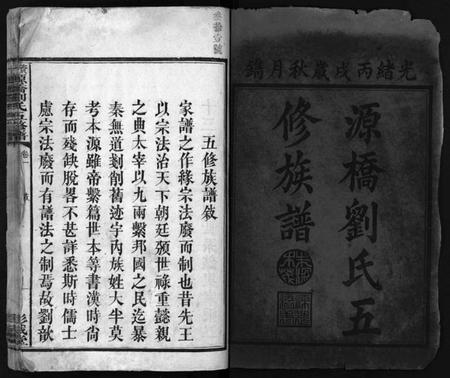 光緒丙戌歲秋月鐫
源橋劉氏五
修族譜
五修族譜敘
家譜之作緣宗法廢而制也昔先王
以宗法治天下朝廷頒世祿重懿親
之典太宰以九兩繫邦國之民迄暴
秦無道剗削舊迹宇內族姓大半莫
考本源雖帝繫篇世本等書漢時尙
存而殘缺脫畧不甚詳悉斯時儒士
慮宗法廢而有譜法之制焉故劉歆
源橋劉氏五修族譜
卷一